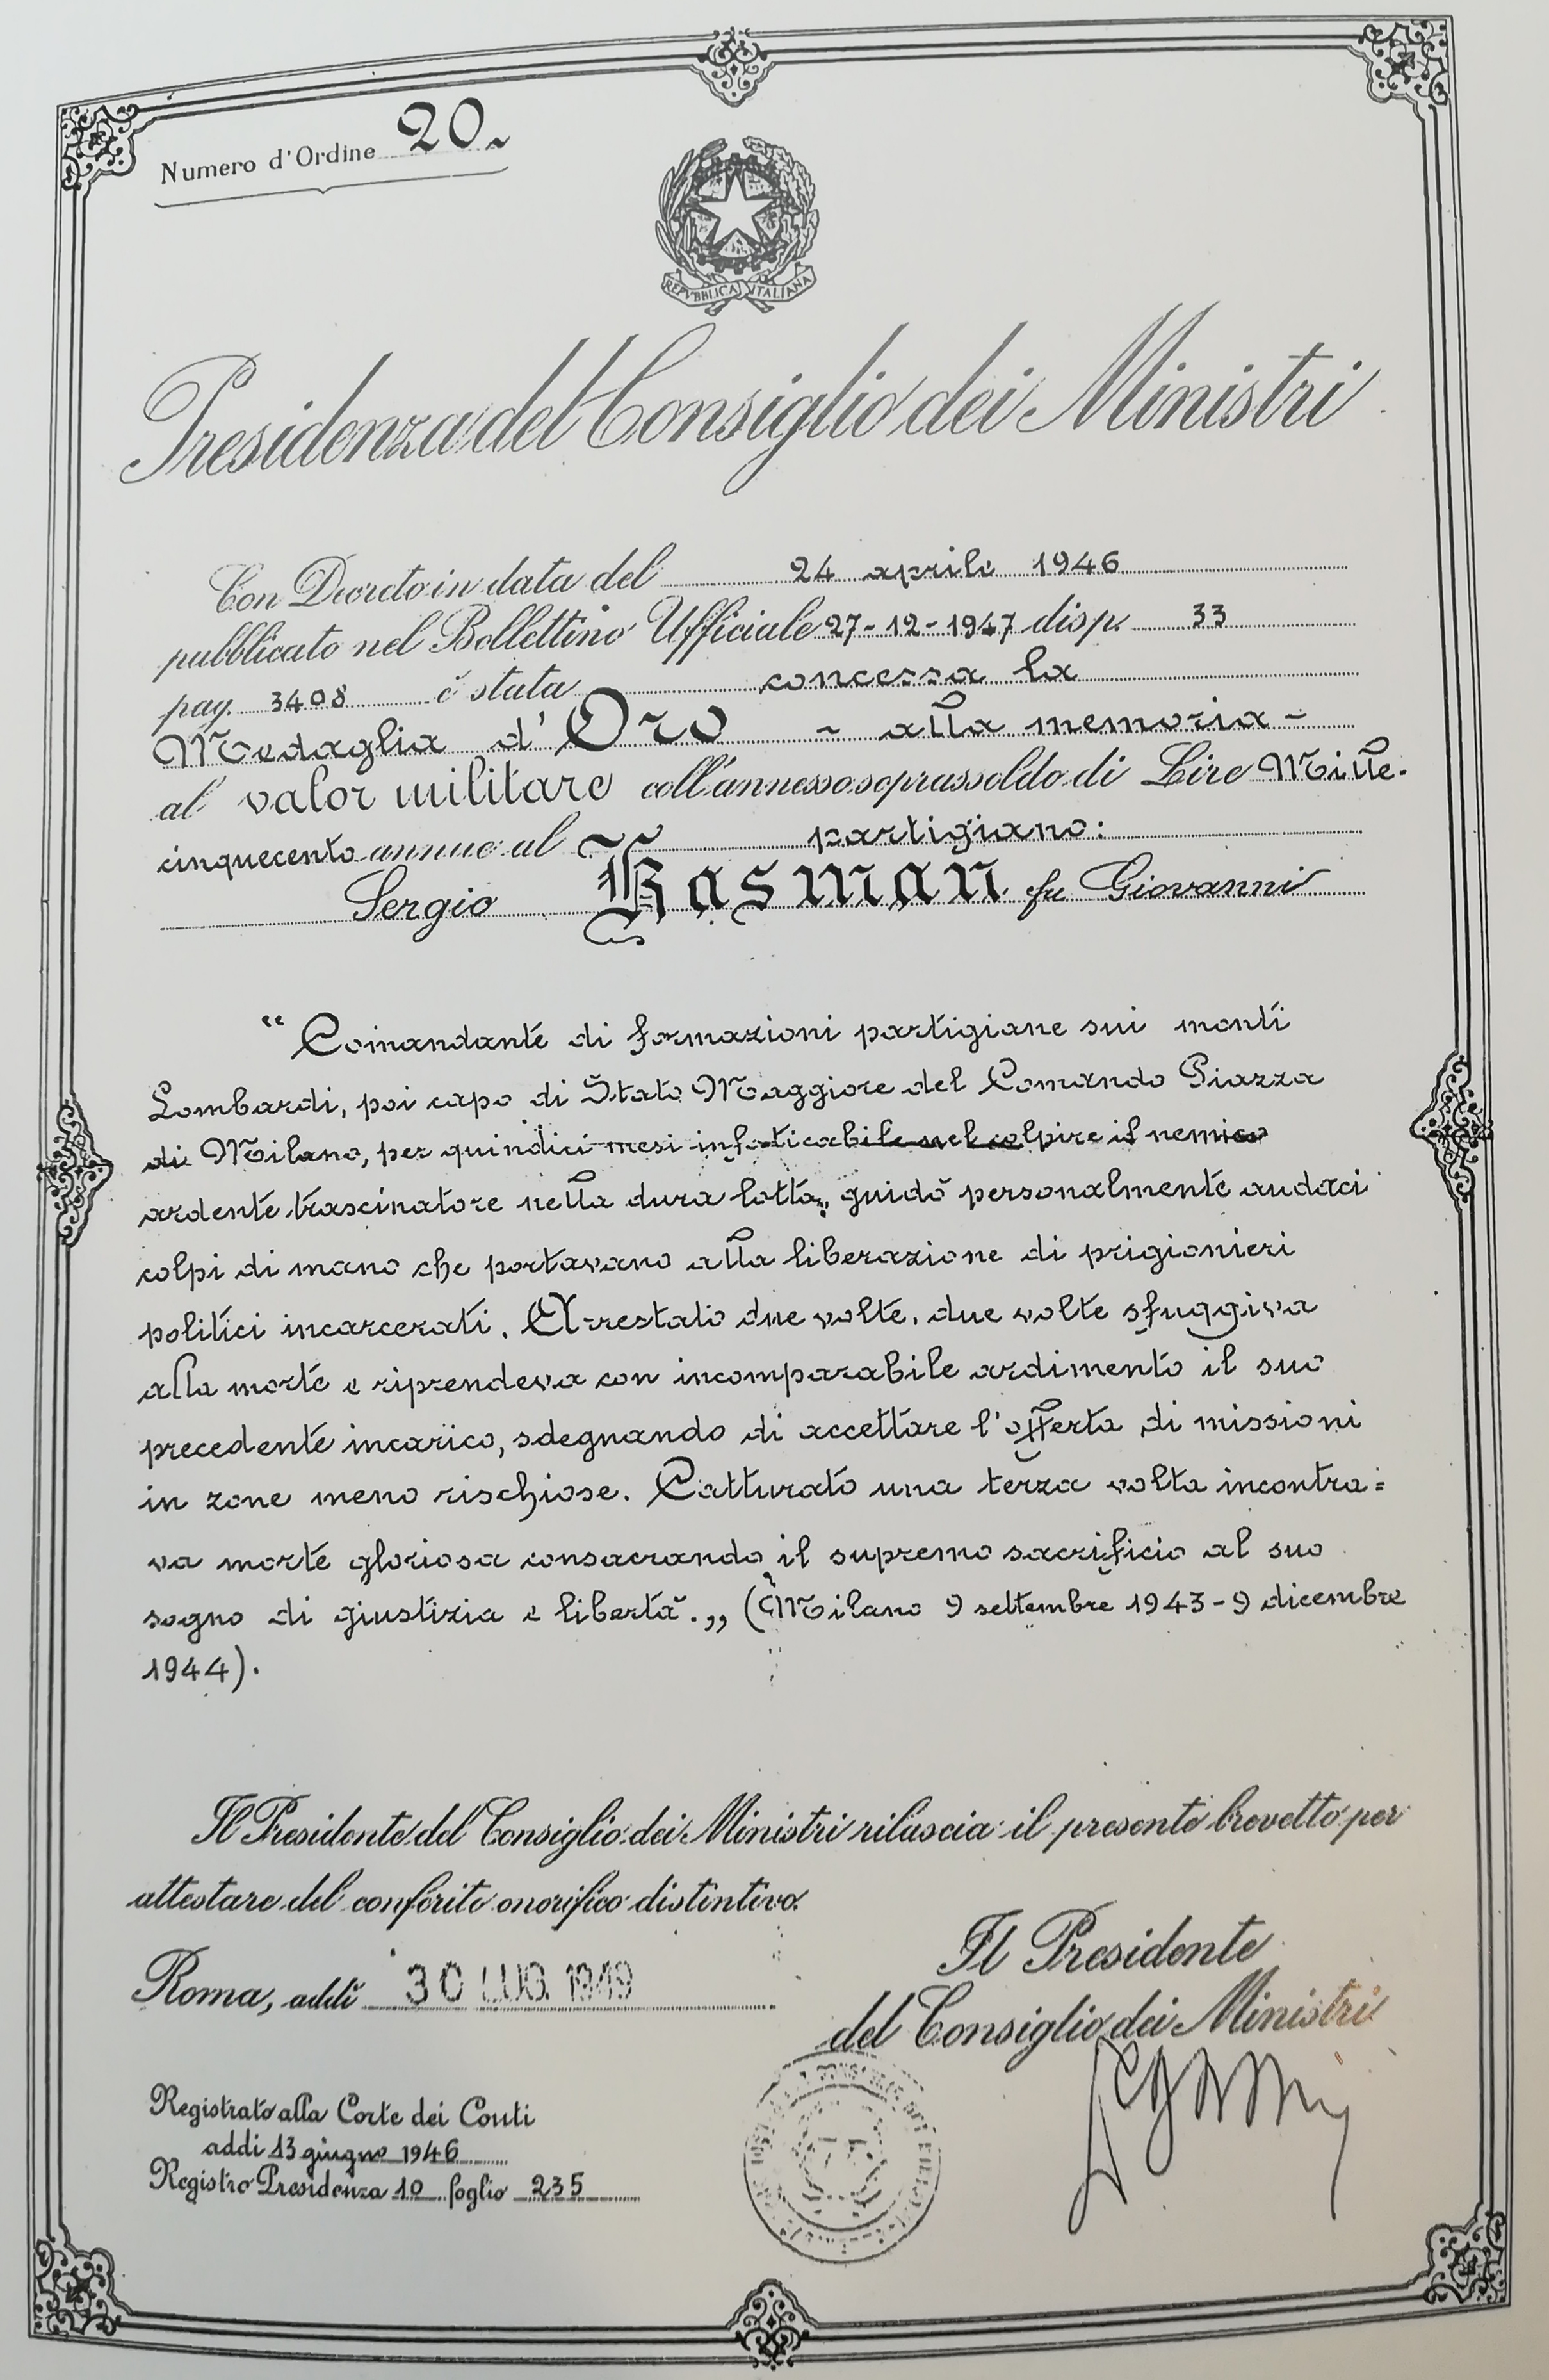 Numero d'Ordine 20.
REPVBBLICA ITALIANA
Presidenza del Consiglio dei Ministri
Con Decreto in data del 24 aprile 1946
pubblicato nel Bollettino Ufficiale 27-12-1947 disp. 33
pag. 3408 è stata concessa la
Medaglia d'Oro - alla memoria -
al valor militare coll'annesso soprassoldo di Lire Mille.
cinquecento annue al partigiano:
Sergio Kasman fu Giovanni
“Comandante di formazioni partigiane sui monti
Lombardi, poi capo di Stato Maggiore del Comando Piazza
di Milano, per quindici mesi infaticabile nel colpire il nemico
ardente trascinatore nella dura lotta, guidò personalmente audaci
colpi di mano che portavano alla liberazione di prigionieri
politici incarcerati. Arrestato due volte, due volte sfuggiva
alla morte e riprendeva con incomparabile ardimento il suo
precedente incarico, sdegnando di accettare l'offerta di missioni
in zone meno rischiose. Catturato una terza volta incontra=
va morte gloriosa consacrando il supremo sacrificio al suo
sogno di giustizia e libertà.„ (Milano 9 settembre 1943-9 dicembre
1944).
Il Presidente del Consiglio dei Ministri rilascia il presente brevetto per
attestare del conferito onorifico distintivo.
Roma, addì 30 LUG. 1949
Il Presidente
del Consiglio dei Ministri
Registrato alla Corte dei Conti
addi 13 giugno 1946
Registro Presidenza 10 foglio 235